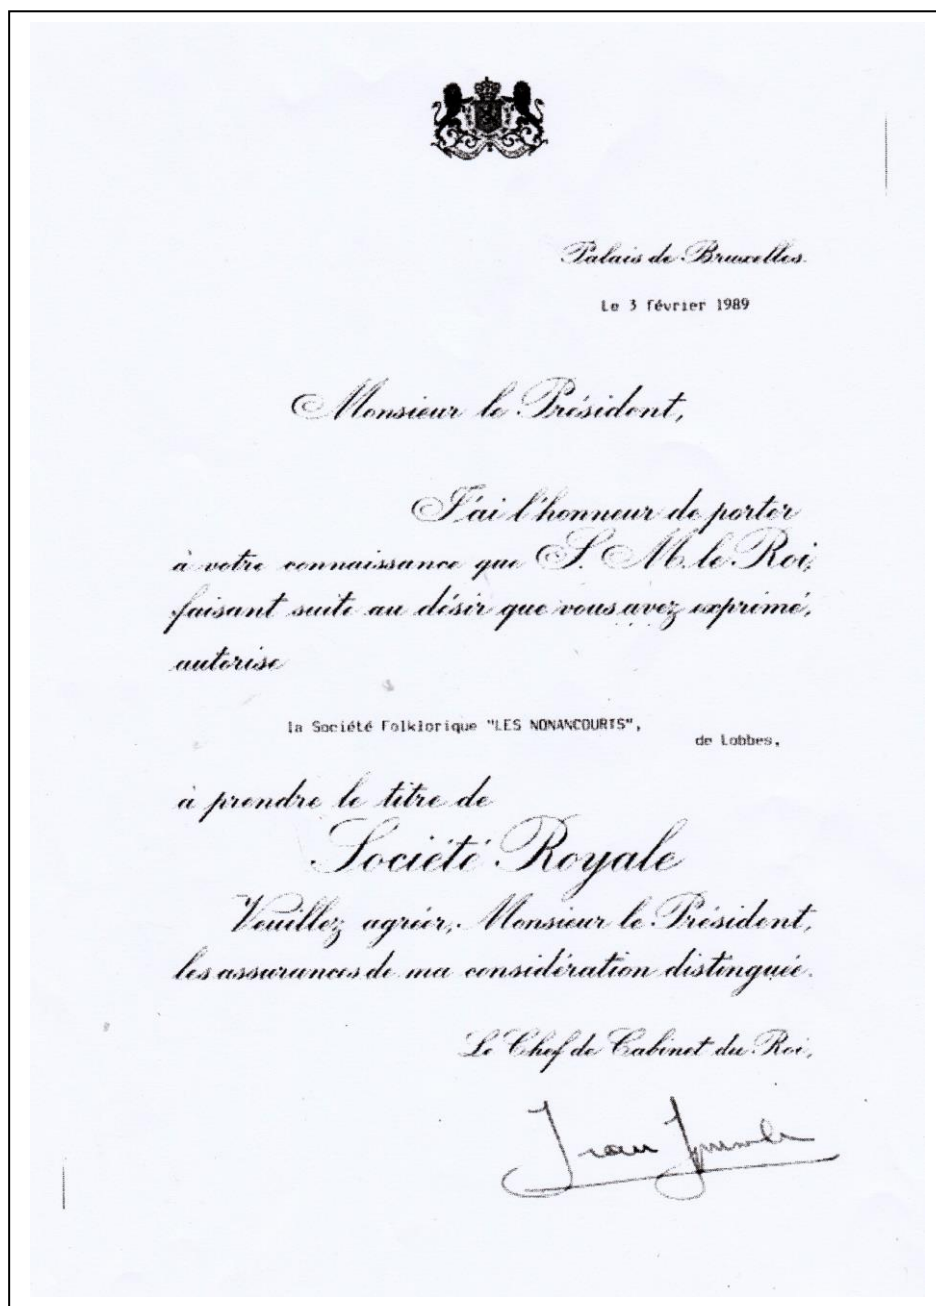 Palais de Bruxelles.
Le 3 février 1989
Monsieur le Président,
J'ai l'honneur de porter
à votre connaissance que S. M. le Roi,
faisant suite au désir que vous avez exprimé,
autorise
la Société Folklorique "LES NONANCOURTS",
de Lobbes,
à prendre le titre de
Société Royale
Veuillez agréer, Monsieur le Président,
les assurances de ma considération distinguée.
Le Chef de Cabinet du Roi,